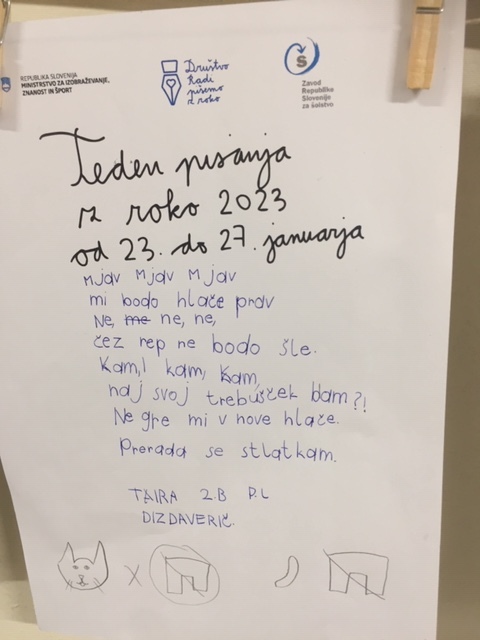 REPUBLIKA SLOVENIJA
MINISTRSTVO ZA IZOBRAŽEVANJE,
ZNANOST IN ŠPORT
Društvo
Radi
pišemo
z roko
Zavod
Republike
Slovenije
za šolstvo
Teden pisanja
z roko 2023
od 23. do 27. januarja
Mjav Mjav Mjav
mi bodo hlače prav
Ne, me ne, ne,
čez rep ne bodo šle.
Kam, kam, kam,
naj svoj trebušček dam?!
Ne gre mi v nove hlače.
Prerada se stlatkam.
TAIRA 2.B P.L
DIZDAVERIČ.